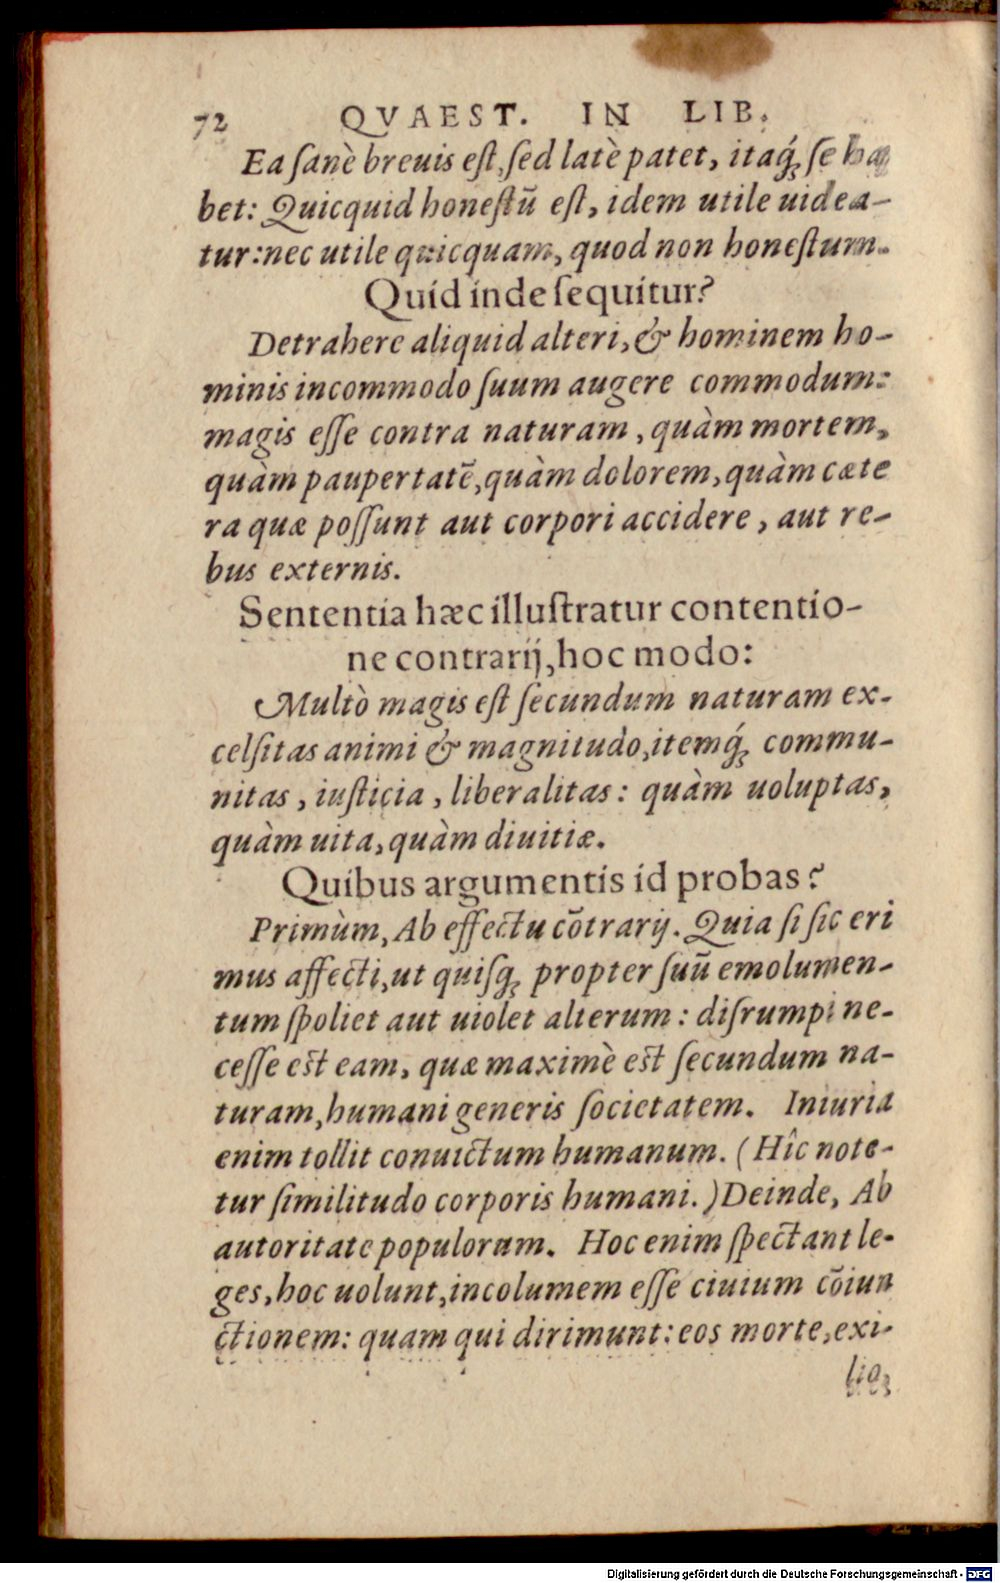 72 QVAEST. IN LIB.
Ea ſanè breuis eſt, ſed latè patet, itaq́ꝫ ſe ha
bet: Quicquid honeſtũ eſt, idem utile uidea-
tur: nec utile quicquam, quod non honeſtum.
Quid inde ſequitur?
Detrahere aliquid alteri, & hominem ho-
minis incommodo ſuum augere commodum:
magis eſſe contra naturam, quàm mortem,
quàm paupertatẽ, quàm dolorem, quàm cæte
ra quæ poſſunt aut corpori accidere, aut re-
bus externis.
Sententia hæc illuſtratur contentio-
ne contrarij, hoc modo:
Multò magis eſt ſecundum naturam ex-
celſitas animi & magnitudo, itemq́ꝫ commu-
nitas, iuſticia, liberalitas: quàm uoluptas,
quàm uita, quàm diuitiæ.
Quibus argumentis id probas?
Primùm, Ab effectu cõtrarij. Quia ſi ſic eri
mus affecti, ut quiſqꝫ propter ſuũ emolumen-
tum ſpoliet aut uiolet alterum: diſrumpi ne-
ceſſe est eam, quæ maximè est ſecundum na-
turam, humani generis ſocietatem. Iniuria
enim tollit conuictum humanum. (Hîc note-
tur ſimilitudo corporis humani.) Deinde, Ab
autoritate populorum. Hoc enim ſpectant le-
ges, hoc uolunt, incolumem eſſe ciuium cõiun
ctionem: quam qui dirimunt: eos morte, exi-
lio,
Digitalisierung gefördert durch die Deutsche Forschungsgemeinschaft - DFG